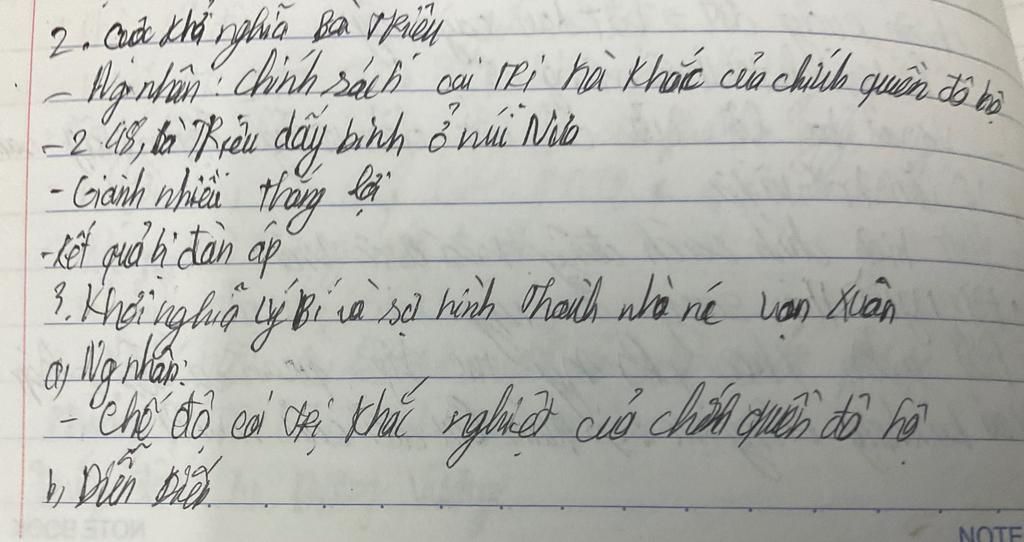 2. Cuộc khởi nghĩa Bà Triệu
- Ng nhân: Chính sách cai trị hà khắc của chính quyền đô hộ
- 248, bà Triệu dấy binh ở núi Nưa
- Giành nhiều thắng lợi
- Kết quả bị đàn áp
3. Khởi nghĩa Lý Bí và sự hình thành nhà nc Vạn Xuân
a, Ng nhân:
- Chế độ cai trị khắc nghiệt của chính quyền đô hộ
b, Diễn biến
NOTE